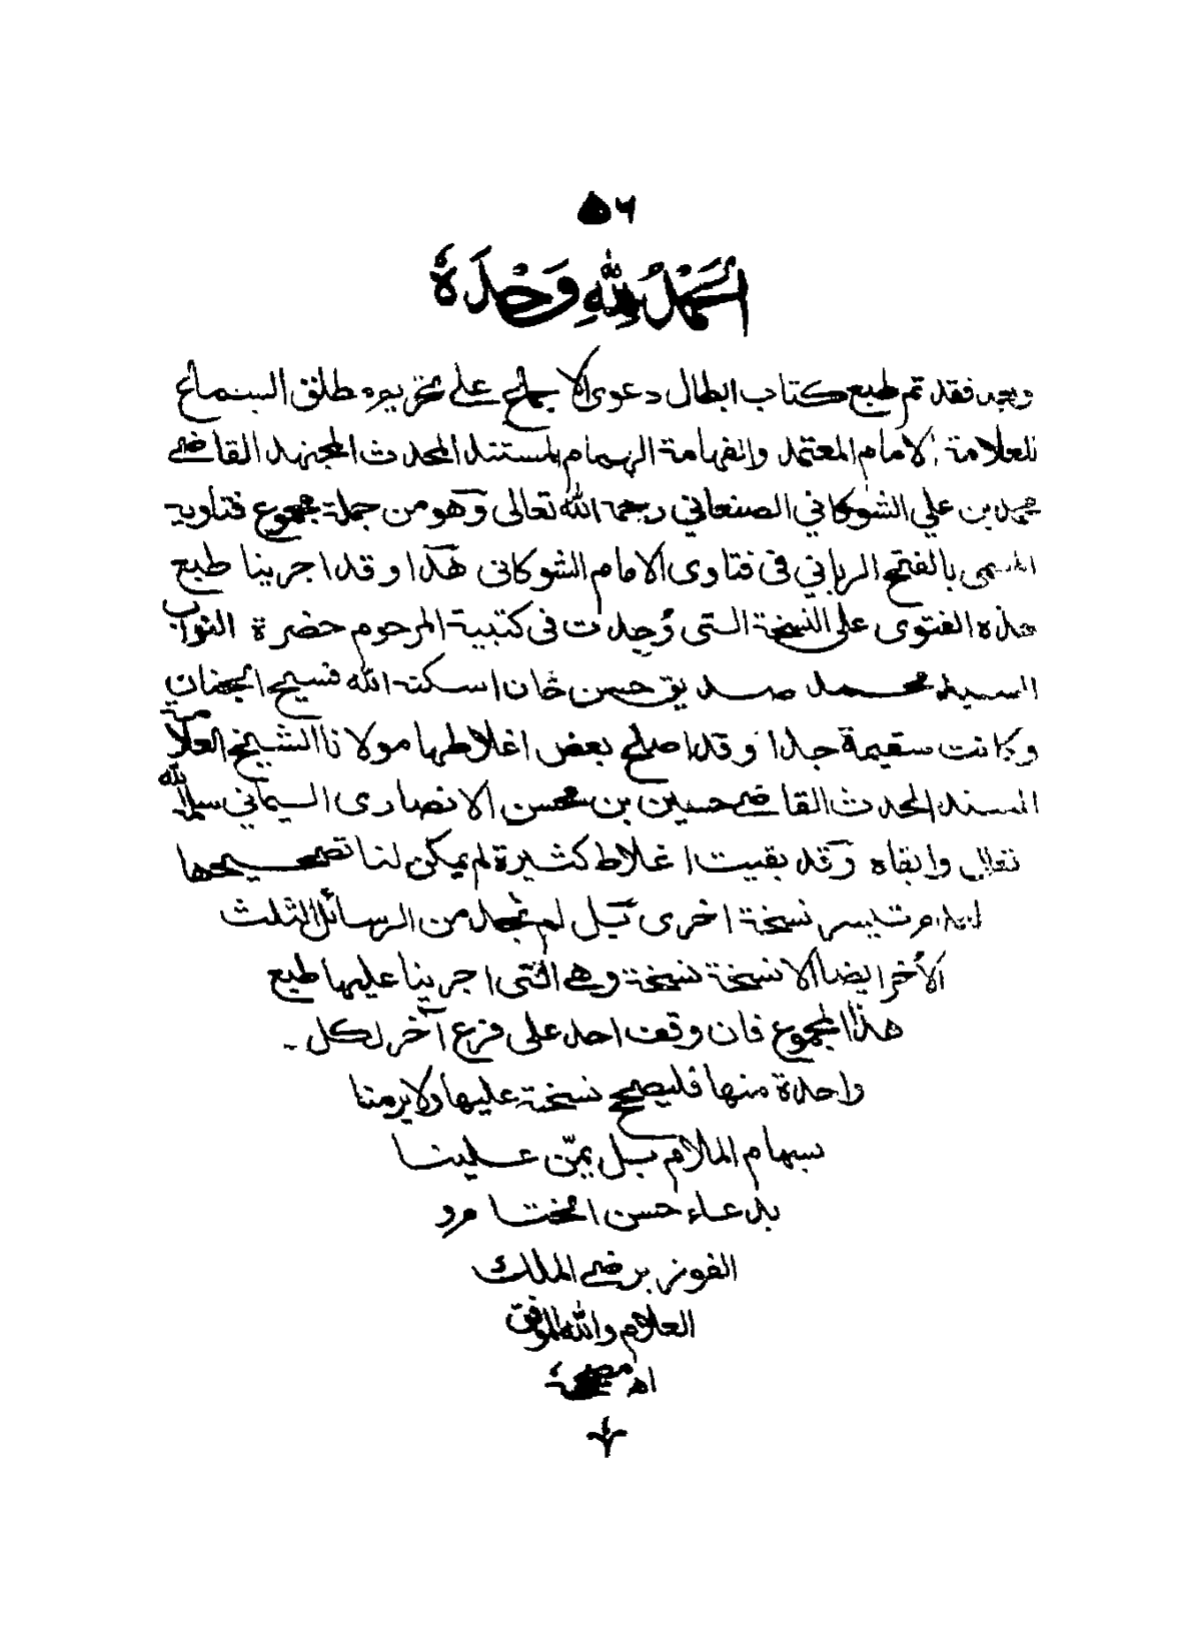 ٥٦
الحَمْدُ لِلّٰهِ وَحْدَهٗ
وبعد فقد تم طبع كتاب ابطال دعوى الاجماع على تحريم مطلق السماع
للعلامة الامام المعتمد والفهامة الهمام المستند المحدث المجتهد القاضي
محمد بن علي الشوكاني الصنعاني رحمة الله تعالى وهو من جملة مجموع فتاويه
المسمى بالفتح الرباني في فتاوى الامام الشوكانى هذا وقد اجرينا طبع
هذه الفتوى على النسخة التى وُجدت فى كتبية المرحوم حضرة النواب
السيد محمد صديق حسن خان اسكنه الله فسيح الجنان
وكانت سقيمة جدا وقد اصلح بعض اغلاطها مولانا الشيخ العلامة
المسند المحدث القاضي حسين بن محسن الانصارى اليماني سلمه الله
تعالى وابقاه وقد بقيت اغلاط كثيرة لم يمكن لنا تصحيحها
لعدم تيسر نسخة اخرى بل لم نجد من الرسائل الثلث
الأخر ايضا الا نسخة نسخة وهي التى اجرينا عليها طبع
هذا المجموع فان وقف احد على فرع آخر لكل ـ
واحدة منها فليصحح نسخته عليها ولا يرمنا
بسهام الملام بل يمنّ علينا
بدعاء حسن الختام و
الفوز برضي الملك
العلام والله الموفق
اه مصححه